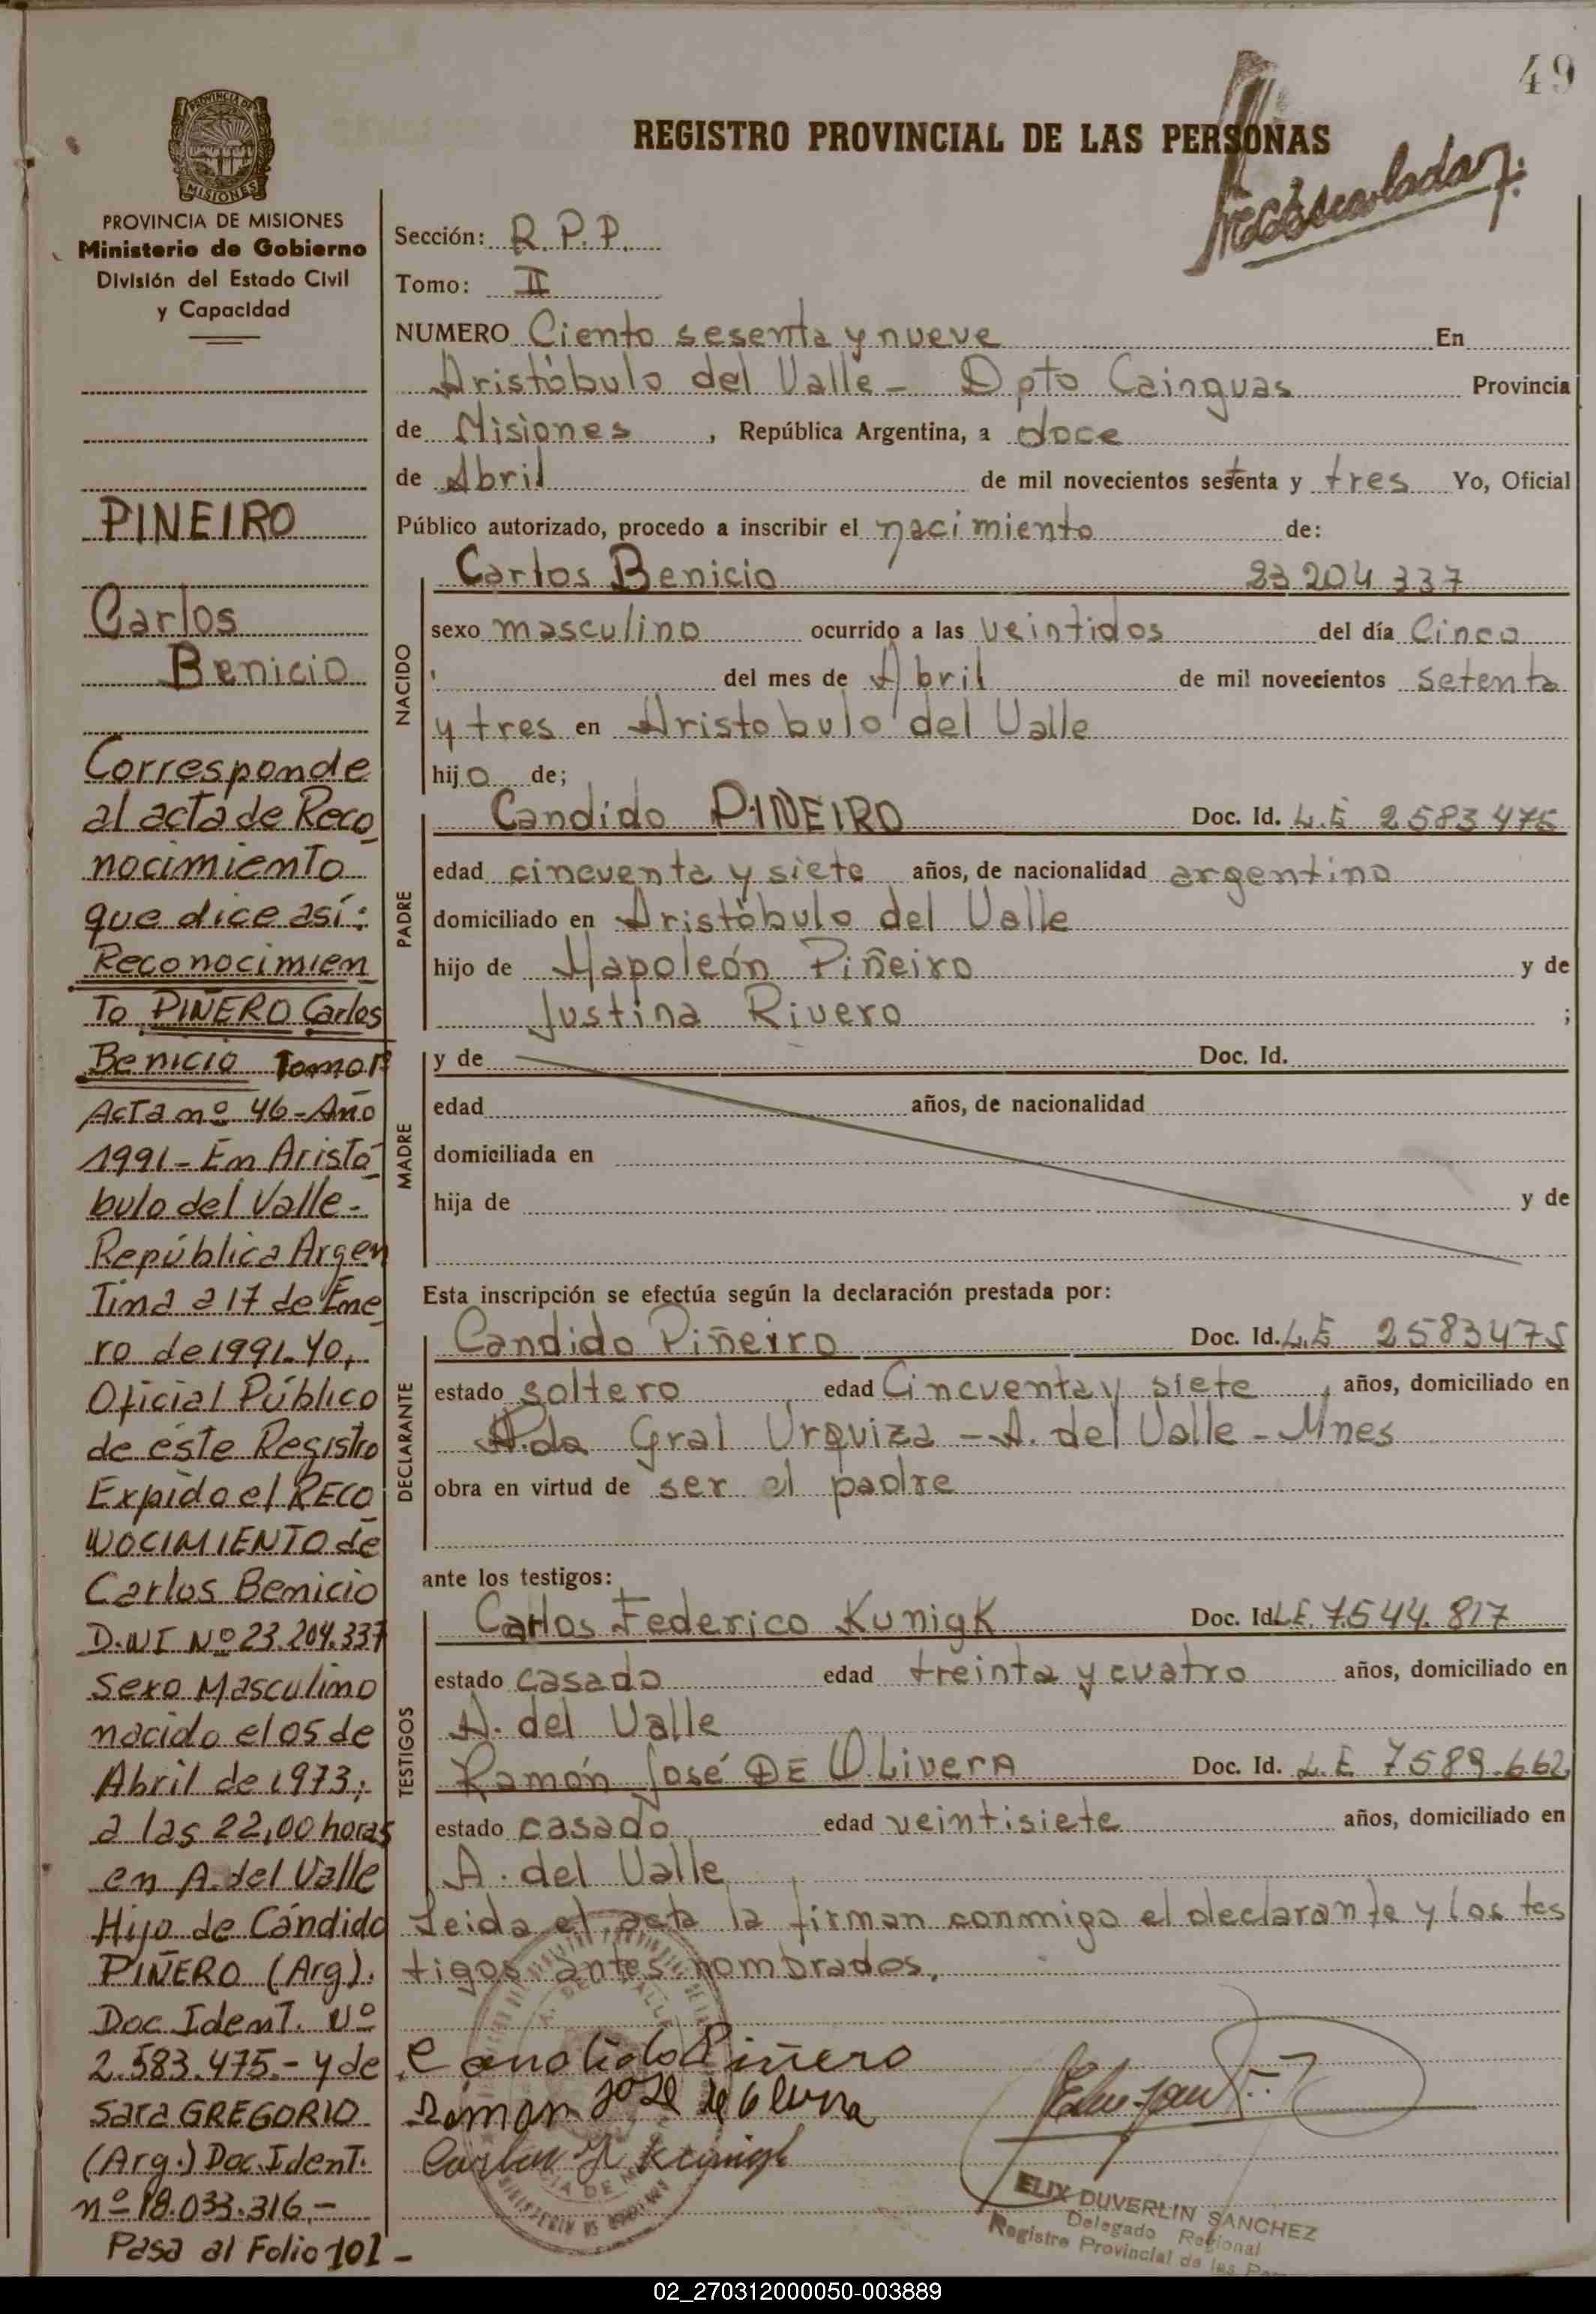 49
PROVINCIA DE
MISIONES
REGISTRO PROVINCIAL DE LAS PERSONAS
PROVINCIA DE MISIONES
Ministerio de Gobierno
División del Estado Civil
y Capacidad
PINEIRO
Carlos
Benicio
Corresponde
al acta de Reco
nocimiento
que dice así:
Reconocimien
To PIÑERO Carlos
Benicio Tomo 1º
Acta nº 46-Año
1991- En Aristó
bulo del Valle-
República Argen
Tina a 17 de Ene
ro de 1991. Yo,
Oficial Público
de éste Registro
Expido el RECO
NOCIMIENTO de
Carlos Benicio
D.N I Nº 23.204.337
Sexo Masculino
nacido el 05 de
Abril de 1973;
a las 22,00 horas
en A. del Valle
Hijo de Cándido
PIÑERO (Arg).
Doc Ident. Nº
2.583.475.- y de
Sara GREGORIO
(Arg.) Doc.Ident.
nº 18.033.316.-
Pasa al Folio 101 -
Sección: R.P.P.
Tomo: II
NUMERO Ciento sesenta y nueve En
Aristóbulo del Valle - Dpto Cainguas Provincia
de Misiones, República Argentina, a doce
de Abril de mil novecientos setenta y tres Yo, Oficial
Público autorizado, procedo a inscribir el nacimiento de:
NACIDO
Carlos Benicio 23 204 337
sexo masculino ocurrido a las veintidos del día Cinco
del mes de Abril de mil novecientos setenta
y tres en Aristobulo del Valle
hijo de;
PADRE
Candido PIÑEIRO Doc. Id. L.E 2583475
edad cincuenta y siete años, de nacionalidad argentino
domiciliado en Aristóbulo del Valle
hijo de Napoleón Piñeiro y de
Justina Rivero ;
MADRE
y de Doc. Id.
edad años, de nacionalidad
domiciliada en
hija de y de
Esta inscripción se efectúa según la declaración prestada por:
DECLARANTE
Candido Piñeiro Doc. Id. L.E 2583475
estado soltero edad Cincuenta y siete, años, domiciliado en
Avda Gral Urquiza - A. del Valle - Mnes
obra en virtud de ser el padre
ante los testigos:
TESTIGOS
Carlos Federico Kunigk Doc. Id L.E. 7.544.817
estado casado edad treinta y cuatro años, domiciliado en
A. del Valle
Ramón José DE OLiverA Doc. Id. L.E 7589.662
estado casado edad veintisiete años, domiciliado en
A. del Valle
Leida el acta la firman conmigo el declarante y los tes
tigos antes nombrados.
Candido Piñero
Ramon Jose de
Carlos F Kunigk
ELIX DUVERLIN SANCHEZ
Delegado Regional
Registro Provincial de las
02_270312000050-003889